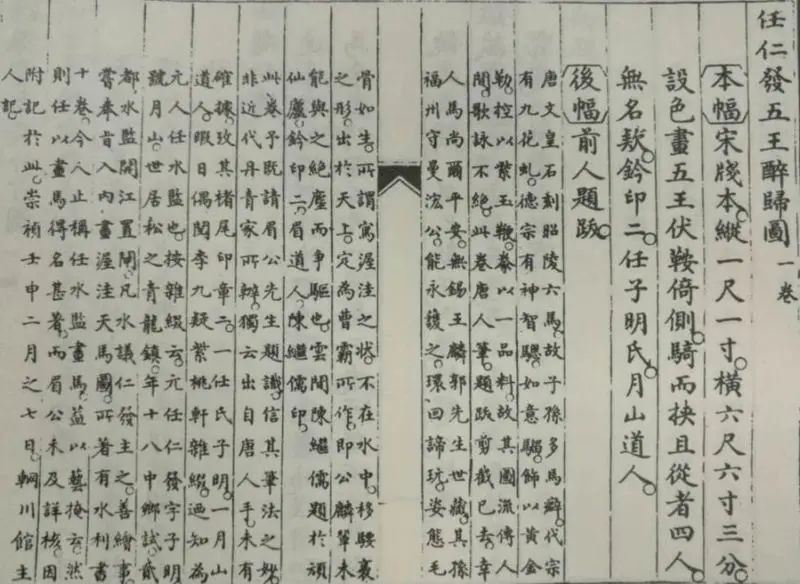 任仁發五王醉歸圖一卷
本幅宋牋本。縱一尺一寸。橫六尺六寸三分。
設色畫五王伏鞍倚側。騎而挾且從者四人。
無名款。鈐印二。任子明氏。月山道人。
後幅前人題跋。
唐文皇石刻昭陵六馬。故子孫多馬癖。代宗
有九花虬。德宗有神智驄。如意騮。飾以黃金
勒。控以紫玉鞭。秦以一品料。故其國流傳人
間。歌詠不絕。此卷唐人筆。題跋剪截已去。幸
人馬尚爾平安。無錫王麟郭先生世藏。其孫
福州守曼浤公。能永護之。環回諦玩。姿態毛
骨如生。所謂寫渥洼之狀。不在水中。移騕褭
之形。出於天上。定為曹霸所作。即公麟筆未
能與之絕塵而爭驅也。雲間陳繼儒題於頑
仙廬。鈐印二。眉道人。陳繼儒印。
此卷予既請眉公先生題識。信其筆法之妙。
非近代丹青家所辦。獨云出自唐人手。未有
確據。攷其楮尾印章二。一任氏子明。一月山
道人。暇日偶閱李九疑紫桃軒雜綴。迺知為
元人任水監也。按雜綴云。元任仁發字子明。
號月山。世居松之青龍鎮。年十八中鄉試。貳
都水監開江置閘。凡水議仁發主之。善繪事。
嘗奉旨入內畫渥洼天馬圖。所著有水利書
十卷。今人止稱任水監畫馬。葢以藝掩云。然
則任以畫馬得名甚著。而眉公未及詳核。因
附記於此。崇禎壬申二月之七日。輞川館主
人記。